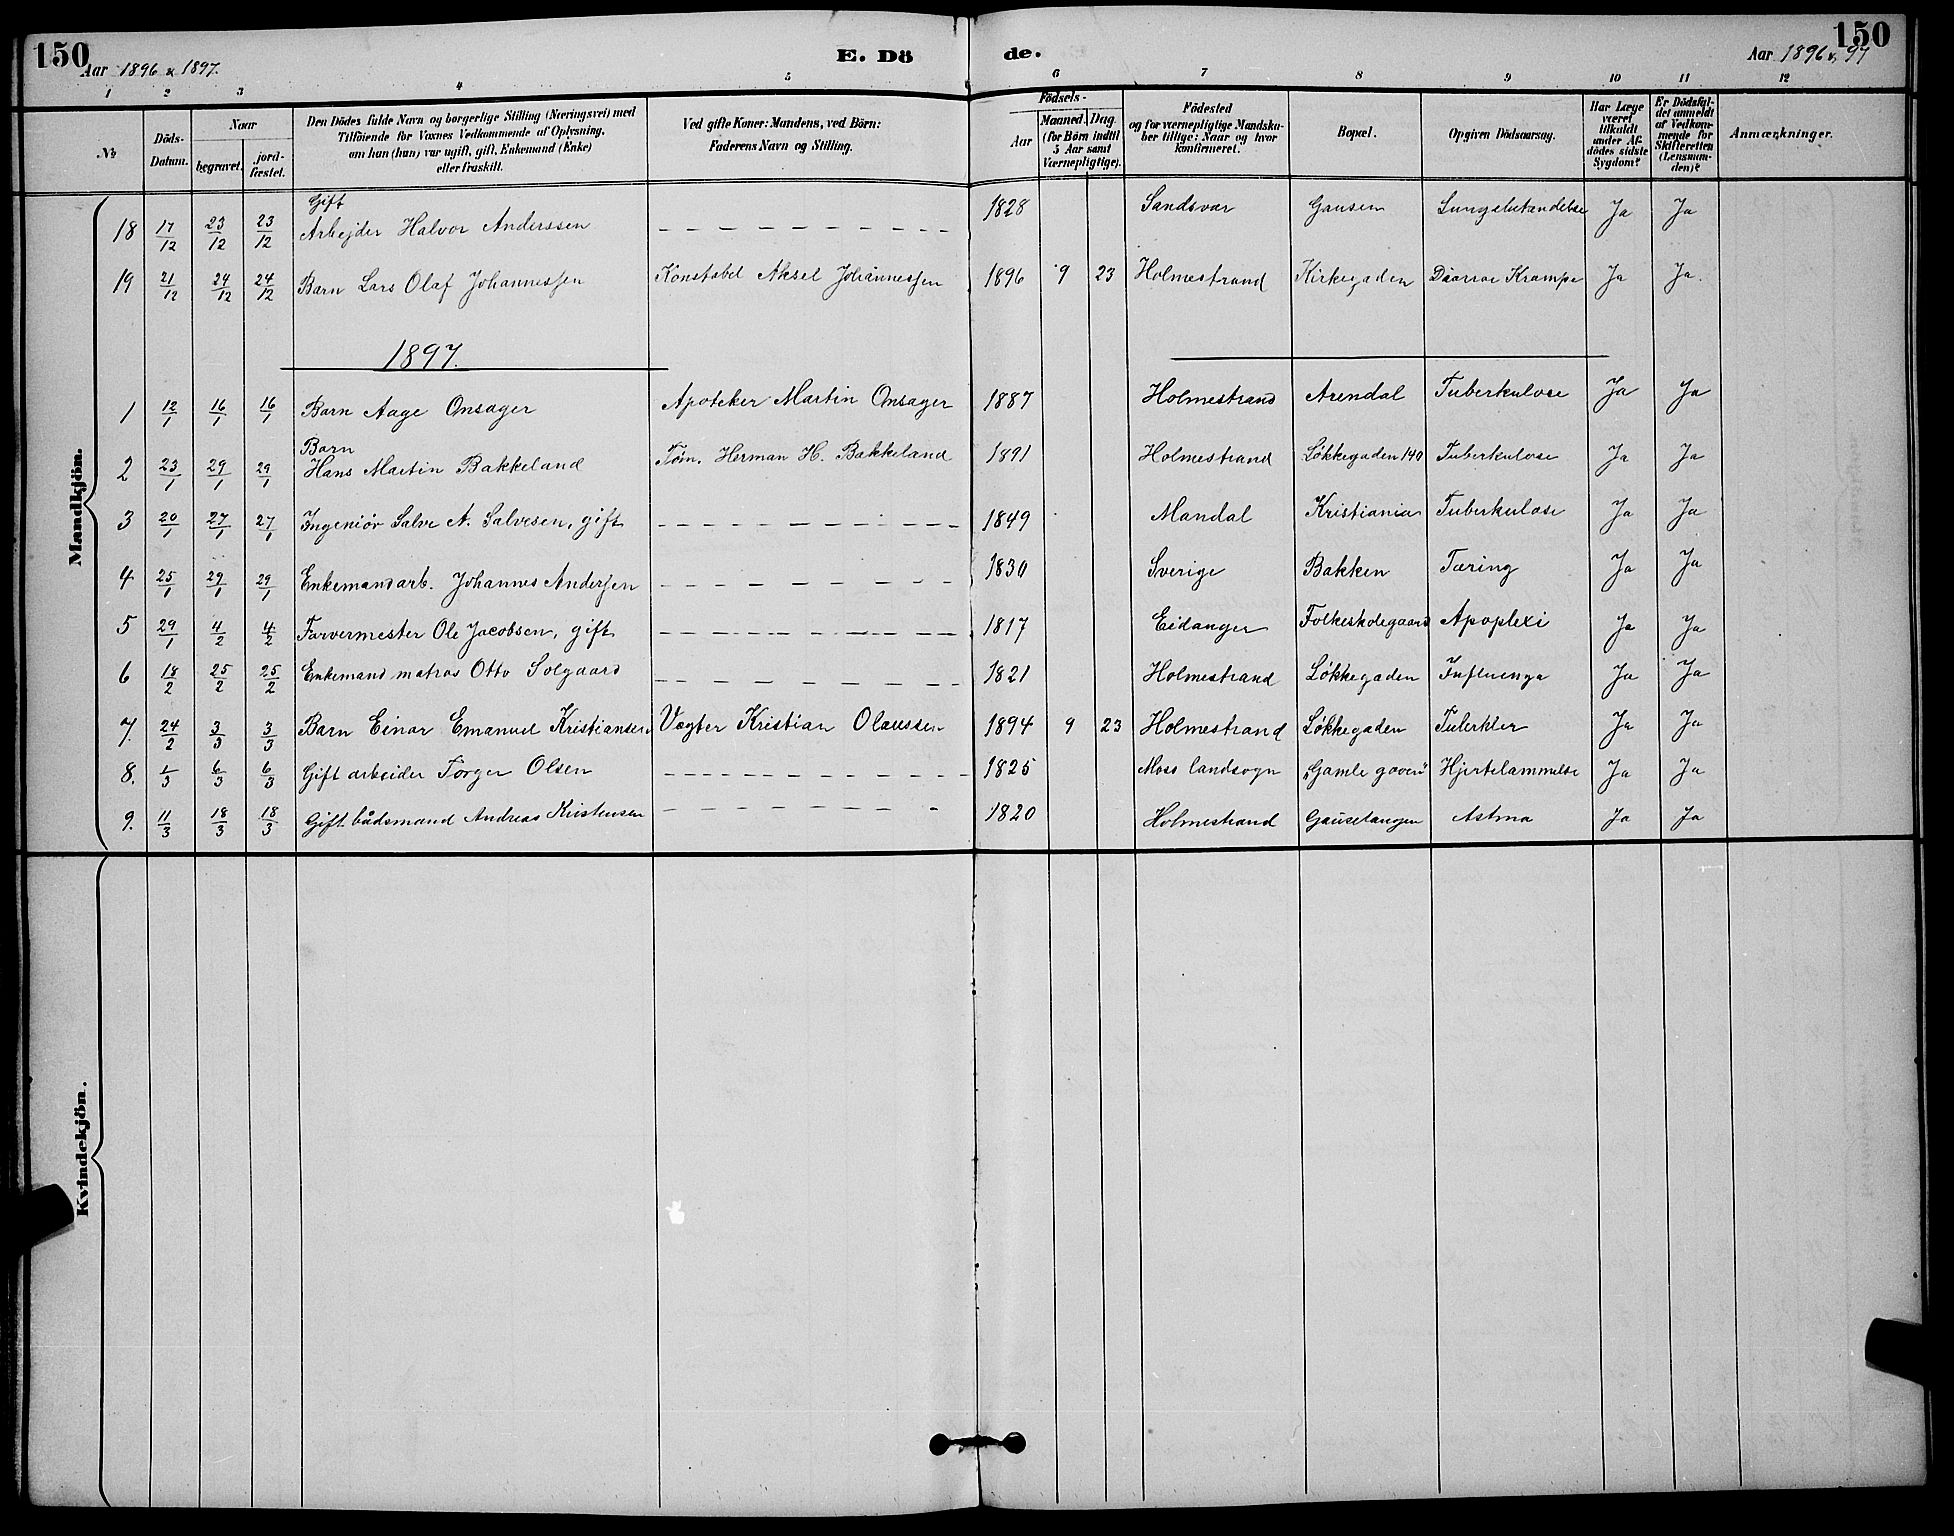 150 Aar 1896 & 1897. E. Dö de. Aar 1896 & 97 150
1 2 3 4 5 6 7 8 9 10 11 12
№ Döds-Datum. Naar begravet. jord-fæstet. Den Dödes fulde Navn og borgerlige Stilling (Næringsvei) med Tilföiende for Voxnes Vedkommende af Oplysning, om han (hun) var ugift, gift, Enkemand (Enke) eller fraskilt. Ved gifte Koner: Mandens, ved Börn: Faderens Navn og Stilling. Födsels- Aar Maaned. Dag. (for Börn indtil 5 Aar samt Værnepligtige). Födested og for værnepligtige Mandskaber tillige: Naar og hvor konfirmeret. Bopæl. Opgiven Dödsaarsag. Har Læge været tilkaldt under Afdödes sidste Sygdom? Er Dödsfaldet anmeldt af Vedkommende for Skifteretten (Lensmanden)? Anmærkninger.
Mandkjön.
Gift
18 17/12 23/12 23/12 Arbejder Halvor Anderssen 1828 Sandsvær Gausen Ja Ja
19 21/12 24/12 24/12 Barn Lars Olaf Johannessen Konstabel Aksel Johannessen 1896 9 23 Holmestrand Kirkegaden Krampe Ja Ja.
1897.
1 12/1 16/1 16/1 Barn Aage Onsager Apoteker Martin Onsager 1887 Holmestrand Arendal Tuberkulose Ja Ja
Barn
2 23/1 29/1 29/1 Hans Martin Bakkeland Tøm. Herman H. Bakkeland 1891 Holmestrand Løkkegaden 140 Tuberkulose Ja Ja
3 20/1 27/1 27/1 Ingeniör Salve A. Salvesen, gift 1849 Mandal Kristiania Tuberkulose Ja Ja
4 25/1 29/1 29/1 Enkemand arb. Johannes Andersen 1830 Sverige Bakken Tæring Ja Ja
5 29/1 4/2 4/2 Farvermester Ole Jacobsen, gift 1817 Eidanger Folkeskolegaard Apoplexi Ja Ja
6 18/2 25/2 25/2 Enkemand matros Otto Solgaard 1821 Holmestrand Løkkegaden Influenza Ja Ja
7. 24/2 3/3 3/3 Barn Einar Emanuel Kristiansen Vægter Kristian Olaussen 1894 9 23 Holmestrand Løkkegaden Tuberkler Ja Ja
8. 1/3 6/3 6/3 Gift arbeider Torger Olsen 1825 Moss landsogn "Gamle gaven" Hjertelammelse Ja Ja
9. 11/3 18/3 18/3 Gift bådsmand Andreas Kristensen 1820 Holmestrand Gausetangen Astma Ja Ja
Kvindekjön.